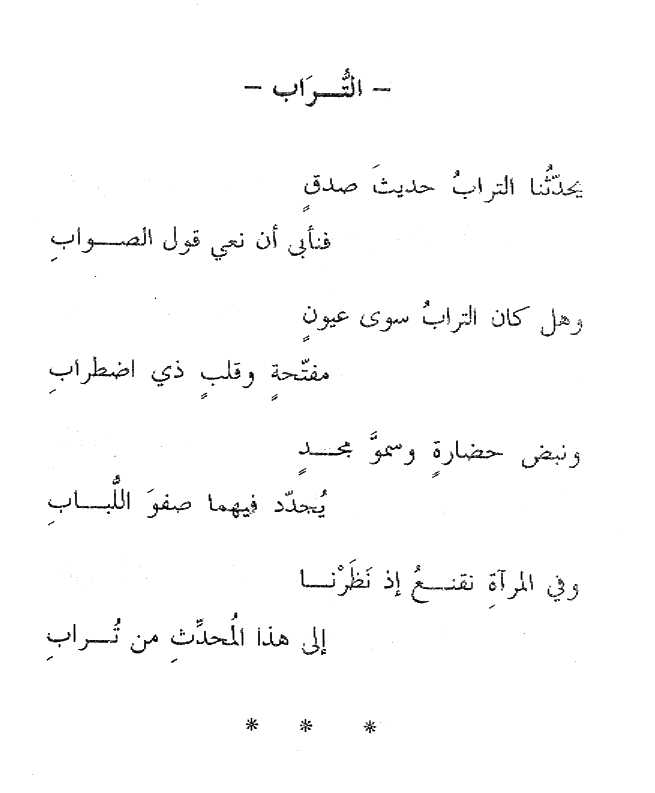 - التُّـــرَاب -
يحدّثُنا الترابُ حديثَ صدقٍ
فنأبى أن نعي قول الصـــوابِ
وهل كان الترابُ سوى عيونٍ
مفتّحةٍ وقلبٍ ذي اضطرابِ
ونبض حضارةٍ وسموَّ مجـــدٍ
يُجدّد فيهما صفوَ اللُّبـــابِ
وفي المرآةِ نقنـــعُ إذ نَظَرْنـــا
إلى هذا المُحدِّثِ من تُـــرابِ
* * *